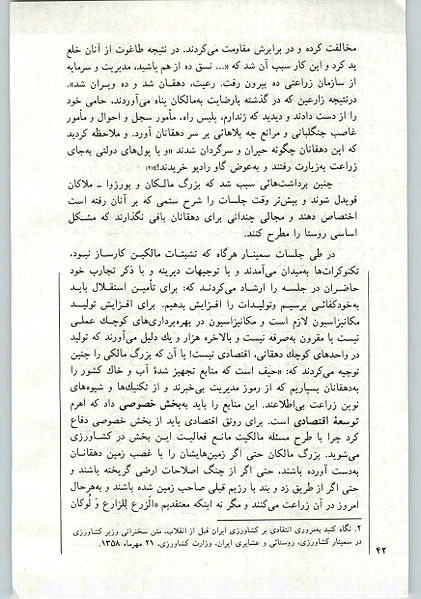 مخالفت کرده و در برابرش مقاومت می‌کردند. در نتیجه طاغوت از آنان خلع
ید کرد و این کار سبب آن شد که «... نسق ده از هم پاشید، مدیریت و سرمایه
از سازمان زراعتی ده بیرون رفت. رعیت، دهقان شد و ده ویران شد».
درنتیجه زارعین که در گذشته بارضایت به‌مالکان پناه می‌آوردند، حامی خود
را از دست دادند و دیدید که ژندارم، پلیس راه، مأمور سجل و احوال و مأمور
غاصب جنگلبانی و مراتع چه بلاهائی بر سر دهقانان آورد. و ملاحظه کردید
که این دهقانان چگونه حیران و سرگردان شدند «و با پول‌های دولتی به‌جای
زراعت به‌زیارت رفتند و به‌عوض گاو رادیو خریدند!»(۲)
چنین برداشت‌هائی سبب شد که بزرگ مالکان و بورژوا ـ ملاکان
قویدل شوند و بیش‌تر وقت جلسات را شرح ستمی که بر آنان رفته است
اختصاص دهند و مجالی چندانی برای دهقانان باقی نگذارند که مشکل
اساسی روستا را مطرح کنند.
در طی جلسات سمینار هرگاه که تشبثات مالکین کارساز نبود،
تکنوکرات‌ها به‌میدان می‌آمدند و با توجیهات دیرینه و با ذکر تجارب خود
حاضران در جلسه را ارشاد می‌کردند که: برای تأمین استقلال باید
به‌خودکفائی برسیم وتولیدات را افزایش بدهیم. برای افزایش تولید
مکانیزاسیون لازم است و مکانیزاسیون در بهره‌برداری‌های کوچك عملی
نیست یا مقرون به‌صرفه نیست و بالاخره هزار و یك دلیل می‌آورند که تولید
در واحدهای کوچك دهقانی، اقتصادی نیست؛ یا آن که بزرگ مالکی را چنین
توجیه می‌کردند که: «حیف است که منابع تجهیز شدهٔ آب و خاك کشور را
به‌دهقانان بسپاریم که از رموز مدیریت بی‌خبرند و از تکنیك‌ها و شیوه‌های
نوین زراعت بی‌اطلاعند. این منابع را باید به‌بخش خصوصی داد که اهرم
توسعهٔ اقتصادی است. برای رونق اقتصادی باید از بخش خصوصی دفاع
کرد چرا با طرح مسئله مالکیت مانع فعالیت این بخش در کشاورزی
می‌شوید. بزرگ مالکان حتی اگر زمین‌هایشان را با غصب زمین دهقانان
به‌دست آورده باشند، حتی اگر از جنگ اصلاحات ارضی گریخته باشند و
حتی اگر از طریق زد و بند با رژیم قبلی صاحب زمین شده باشند و به‌هرحال
امروز در آن زراعت می‌کنند و مگر نه اینکه معتقدیم «الَزرع لِلزارع وَ لُوکان
۲. نگاه کنید به‌مروری انتقادی بر کشاورزی ایران قبل از انقلاب، متن سخنرانی وزیر کشاورزی
در سمینار کشاورزی، روستائی و عشایری ایران، وزارت کشاورزی، ۲۱ مهرماه ۱۳۵۸.
۴۲